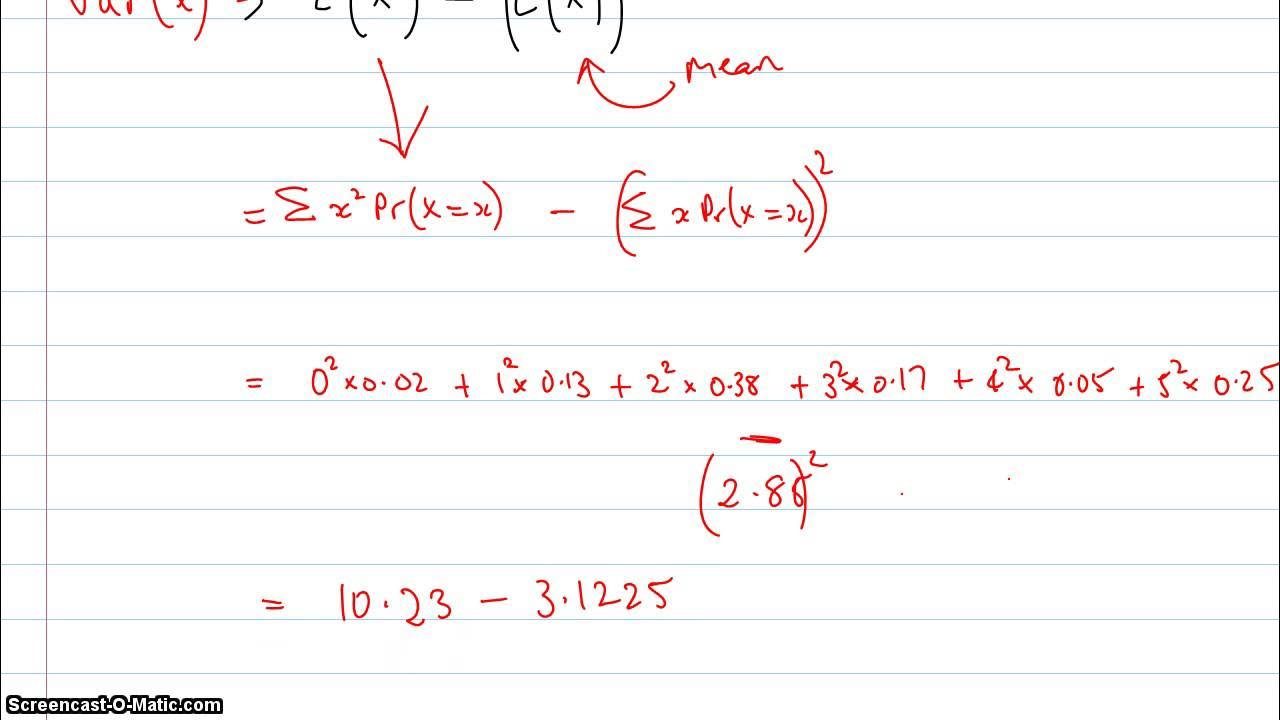 Var(x) => E(x) - (E(x))
Mean
= Σ x² Pr(X=x) - (Σ x Pr(X=x))²
= 0² × 0.02 + 1² × 0.13 + 2² × 0.38 + 3² × 0.17 + 4² × 0.05 + 5² × 0.25
-
(2.85)²
= 10.23 - 3.1225
Screencast-O-Matic.com